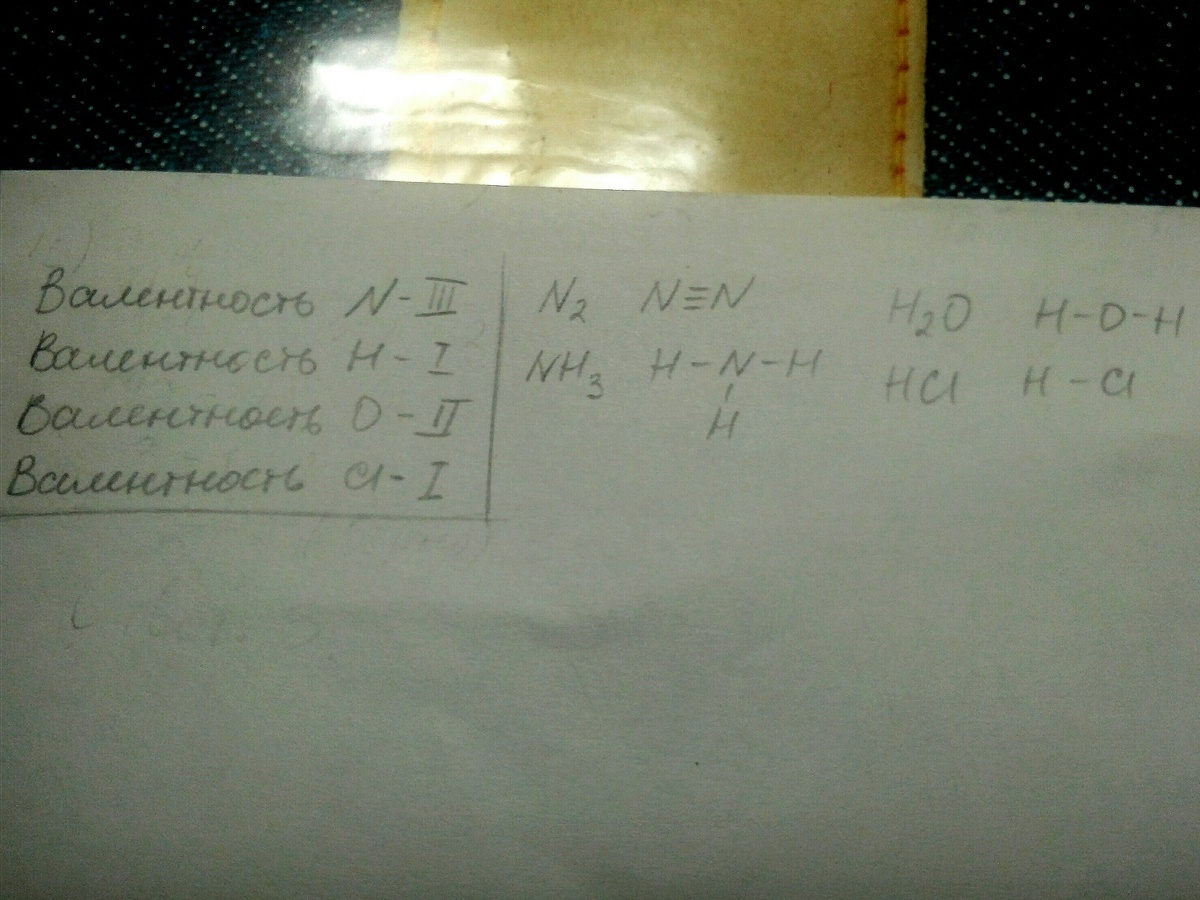 Валентность N - III
Валентность H - I
Валентность O - II
Валентность Cl - I
N₂ N≡N
NH₃ H-N-H
H
H₂O H-O-H
HCl H-Cl